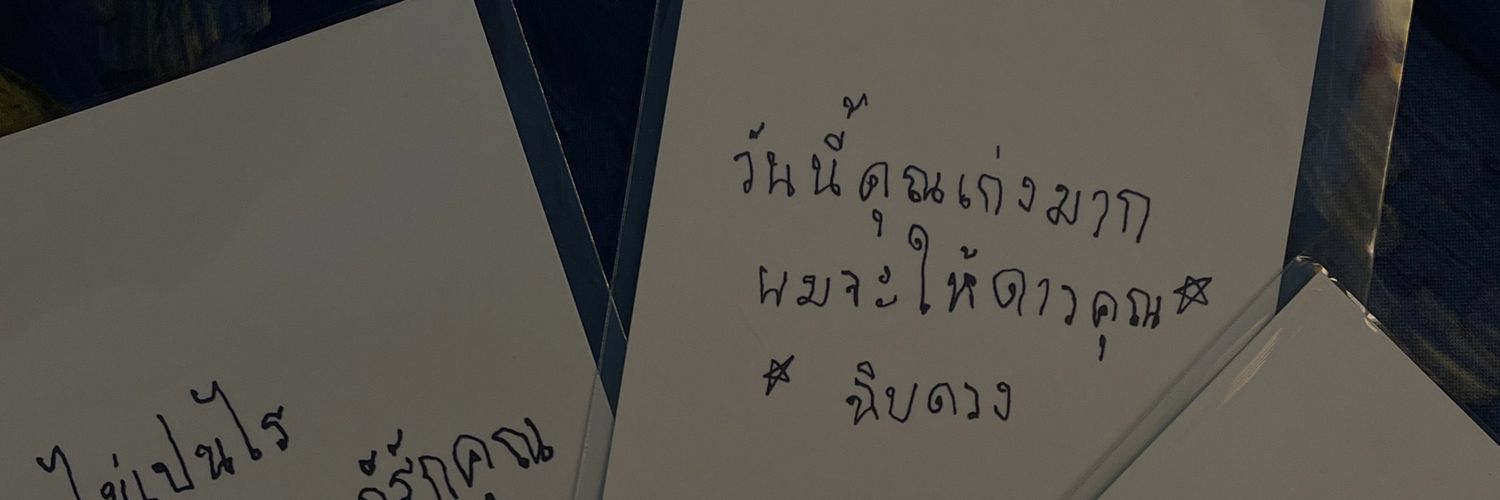 ไม่เป็นไร
รักคุณ
วันนี้คุณเก่งมาก
ผมจะให้ดาวคุณ☆
☆ สิบดวง